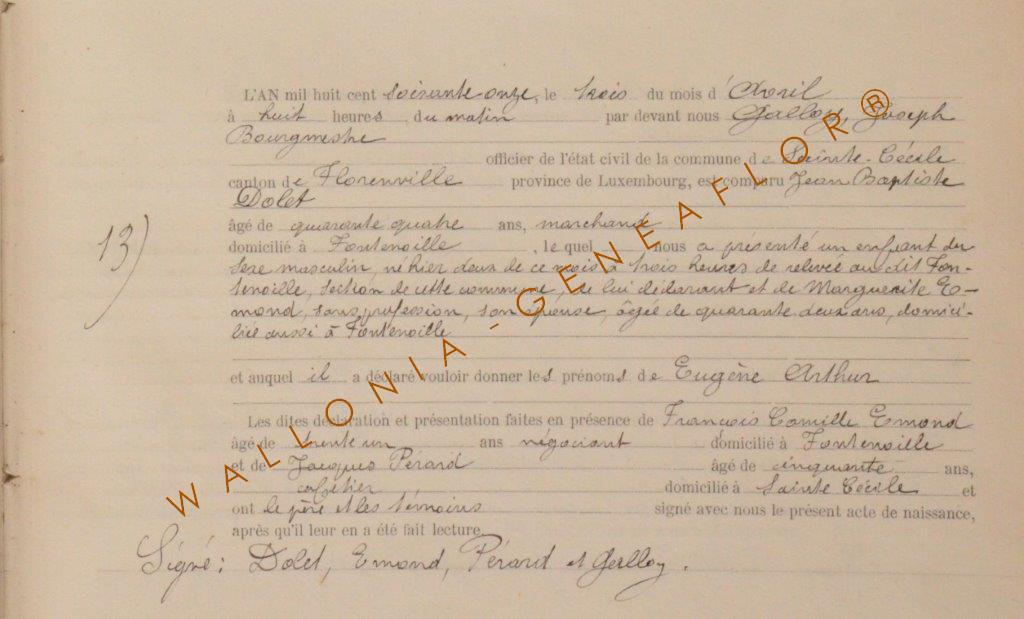 L'AN mil huit cent soixante onze, le trois du mois d'Avril
à huit heures du matin par devant nous Galloy, Joseph
Bourgmestre
officier de l'état civil de la commune de Sainte-Cécile
canton de Florenville province de Luxembourg, est comparu Jean Baptiste
Dolet
âgé de quarante quatre ans, marchand
13)
domicilié à Fontenoille, lequel nous a présenté un enfant du
sexe masculin, né hier deux de ce mois à trois heures de relevée au dit Fon-
tenoille, section de cette commune, de lui déclarant et de Marguerite E-
mond, sans profession, son épouse, âgée de quarante deux ans, domici-
liée aussi à Fontenoille
et auquel il a déclaré vouloir donner les prénoms de Eugène Arthur
Les dites déclaration et présentation faites en présence de François Camille Emond
âgé de trente un ans négociant domicilié à Fontenoille
et de Jacques Pérard âgé de cinquante ans,
cafetier domicilié à Sainte Cécile et
ont le père et les témoins signé avec nous le présent acte de naissance,
après qu'il leur en a été fait lecture
Signé: Dolet, Emond, Pérard et Galloy.
WALLONIA-GENEAFLOR®